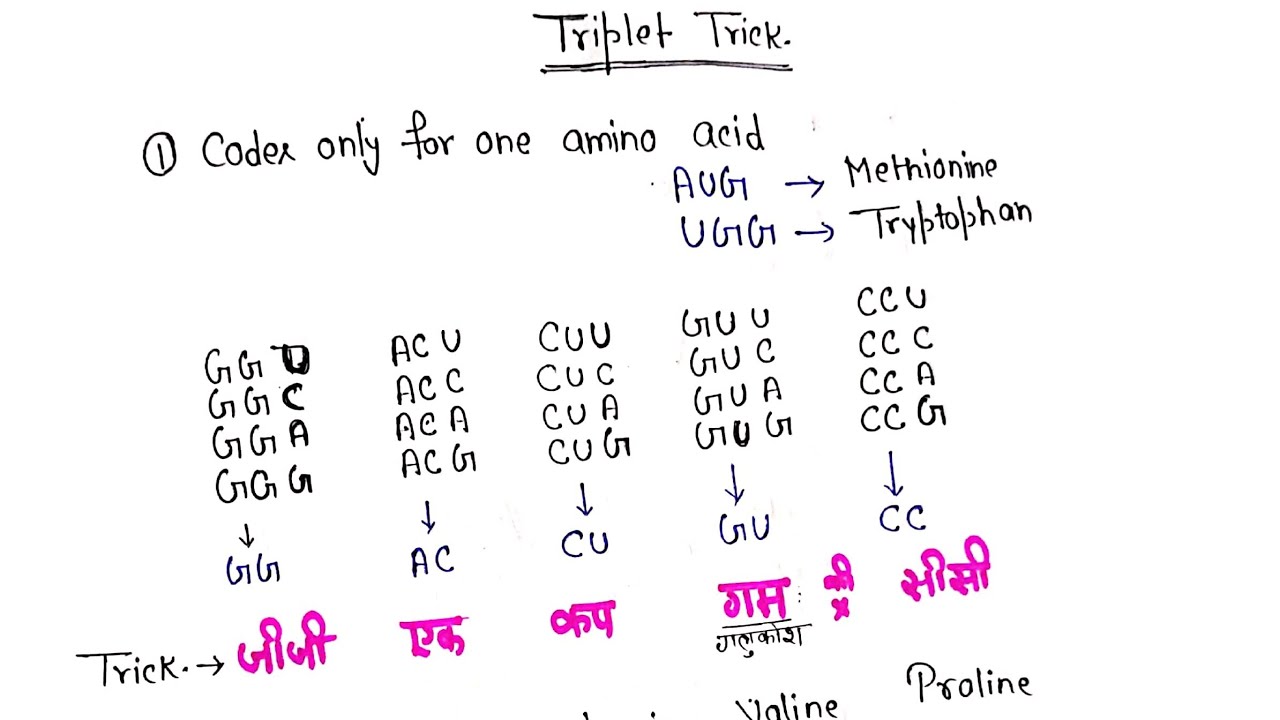 Triplet Trick.
① Codes only for one amino acid
AUG → Methionine
UGG → Tryptophan
GGU ACU CUU GUU CCU
GGC ACC CUC GUC CCC
GGA ACA CUA GUA CCA
GGG ACG CUG GUG CCG
↓ ↓ ↓ ↓ ↓
GG AC CU GU CC
Trick. → जीजी एक कप गम की सीसी
गलुकोश
Valine Proline